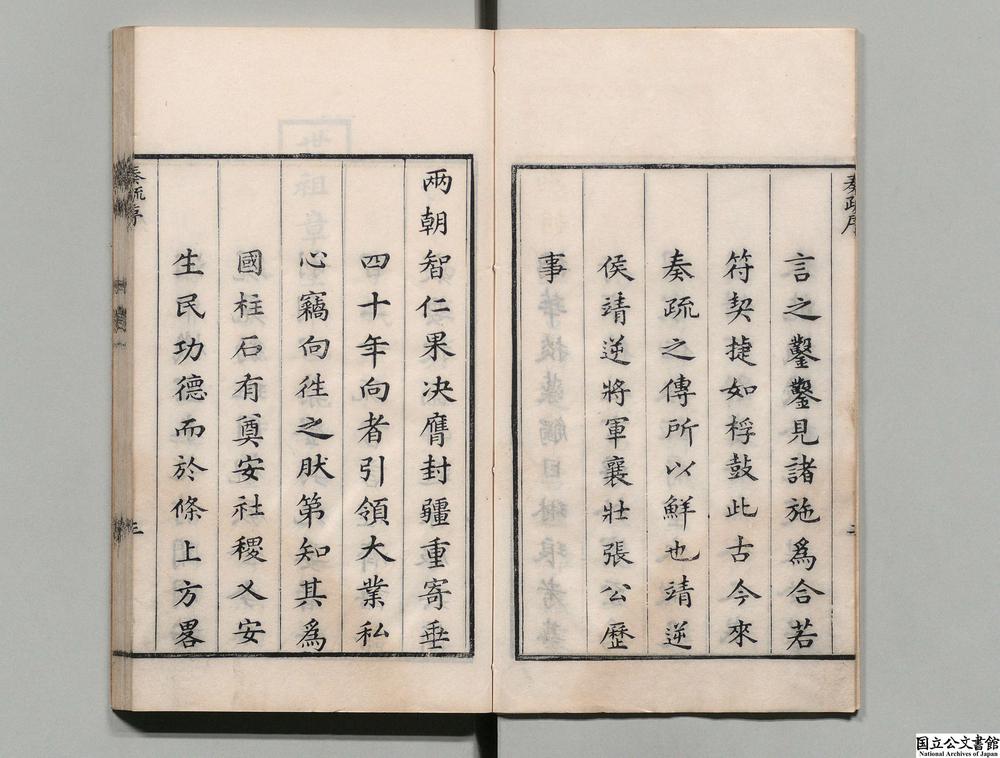 奏疏序
言之鑿鑿見諸施爲合若
符契捷如桴鼓此古今來
奏疏之傳所以鮮也靖逆
侯靖逆將軍襄壯張公歷
事
兩朝智仁果決膺封疆重寄垂
四十年向者引領大業私
心竊向徃之肰第知其爲
國柱石有奠安社稷乂安
生民功德而於條上方畧
奏疏序
三
国立公文書館
National Archives of Japan